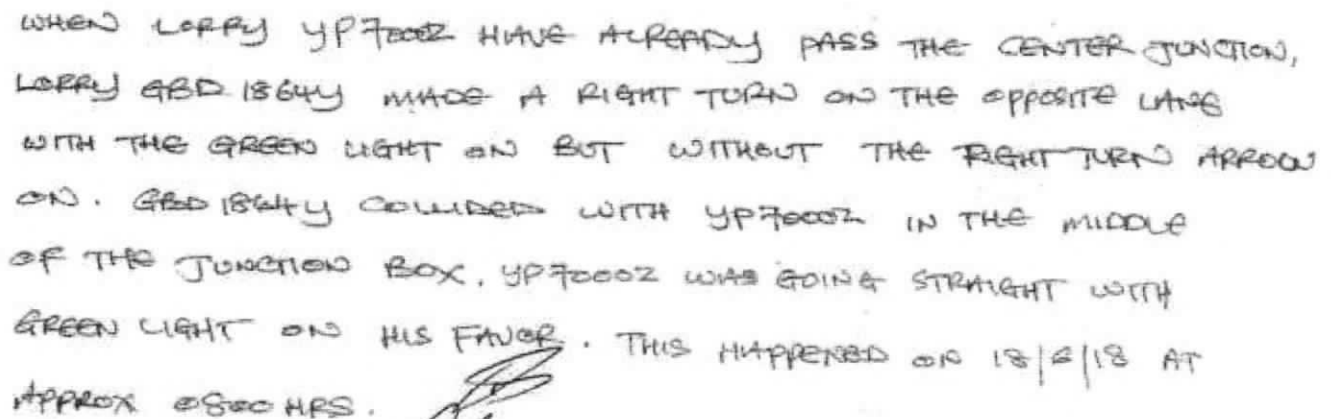 WHEN LORRY YP7000Z HAVE ALREADY PASS THE CENTER JUNCTION,
LORRY GBD 1864Y MADE A RIGHT TURN ON THE OPPOSITE LANE
WITH THE GREEN LIGHT ON BUT WITHOUT THE RIGHT TURN ARROW
ON. GBD 1864Y COLLIDED WITH YP7000Z IN THE MIDDLE
OF THE JUNCTION BOX. YP7000Z WAS GOING STRAIGHT WITH
GREEN LIGHT ON HIS FAVOR. THIS HAPPENED ON 18/6/18 AT
APPROX 0800 HRS.